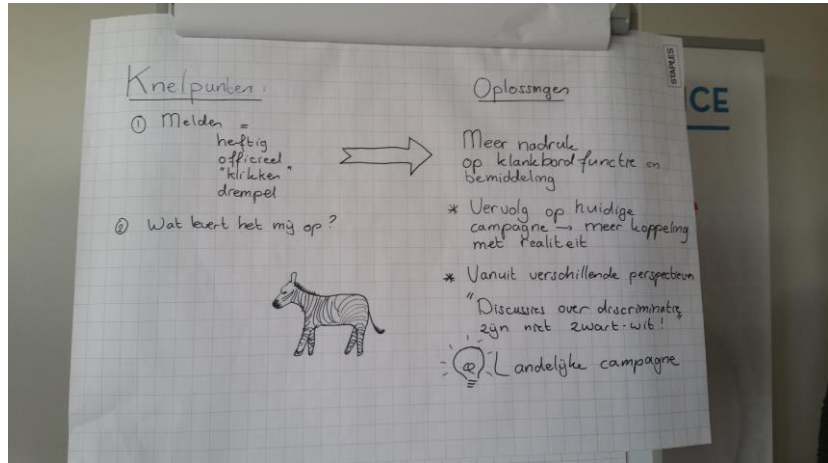 Knelpunten:
① Melden =
heftig
officieel
"klikken"
drempel
② Wat levert het mij op?
Oplossingen
Meer nadruk
op klankbord functie en
bemiddeling
* Vervolg op huidige
campagne → meer koppeling
met realiteit
* Vanuit verschillende perspectieven
"Discussies over discriminatie
zijn niet zwart-wit!
Landelijke campagne
STAPLES
ICE